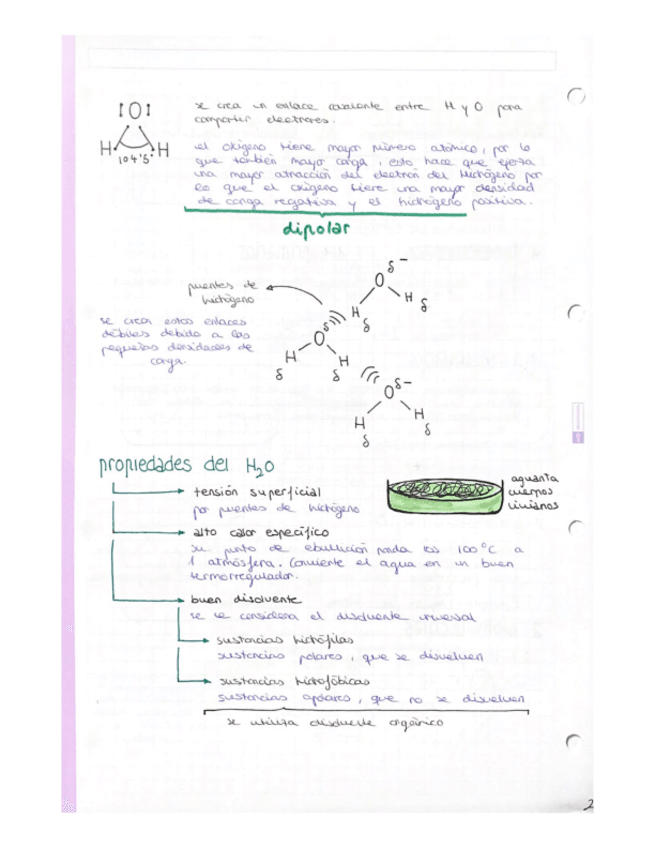 se crea un enlace covalente entre H y O para
compartir electrones.
|O|
H H
104'5°
el oxígeno tiene mayor número atómico, por lo
que también mayor carga, esto hace que ejerza
una mayor atracción del electrón del hidrógeno por
lo que el oxígeno tiene una mayor densidad
de carga negativa y el hidrógeno positiva.
dipolar
puentes de
hidrógeno
se crean estos enlaces
débiles debido a las
pequeñas densidades de
carga.
δ-
O
H H
δ δ
δ
O
H H
δ δ
δ-
O
H H
δ δ
propiedades del H₂O
tensión superficial
por puentes de hidrógeno
aguanta
cuerpos
livianos
alto calor específico
su punto de ebullición ronda los 100°C a
1 atmósfera. Convierte el agua en un buen
termorregulador.
buen disolvente
se le considera el disolvente universal
sustancias hidrófilas
sustancias polares, que se disuelven
sustancias hidrofóbicas
sustancias apolares, que no se disuelven
se utiliza disolvente orgánico
2